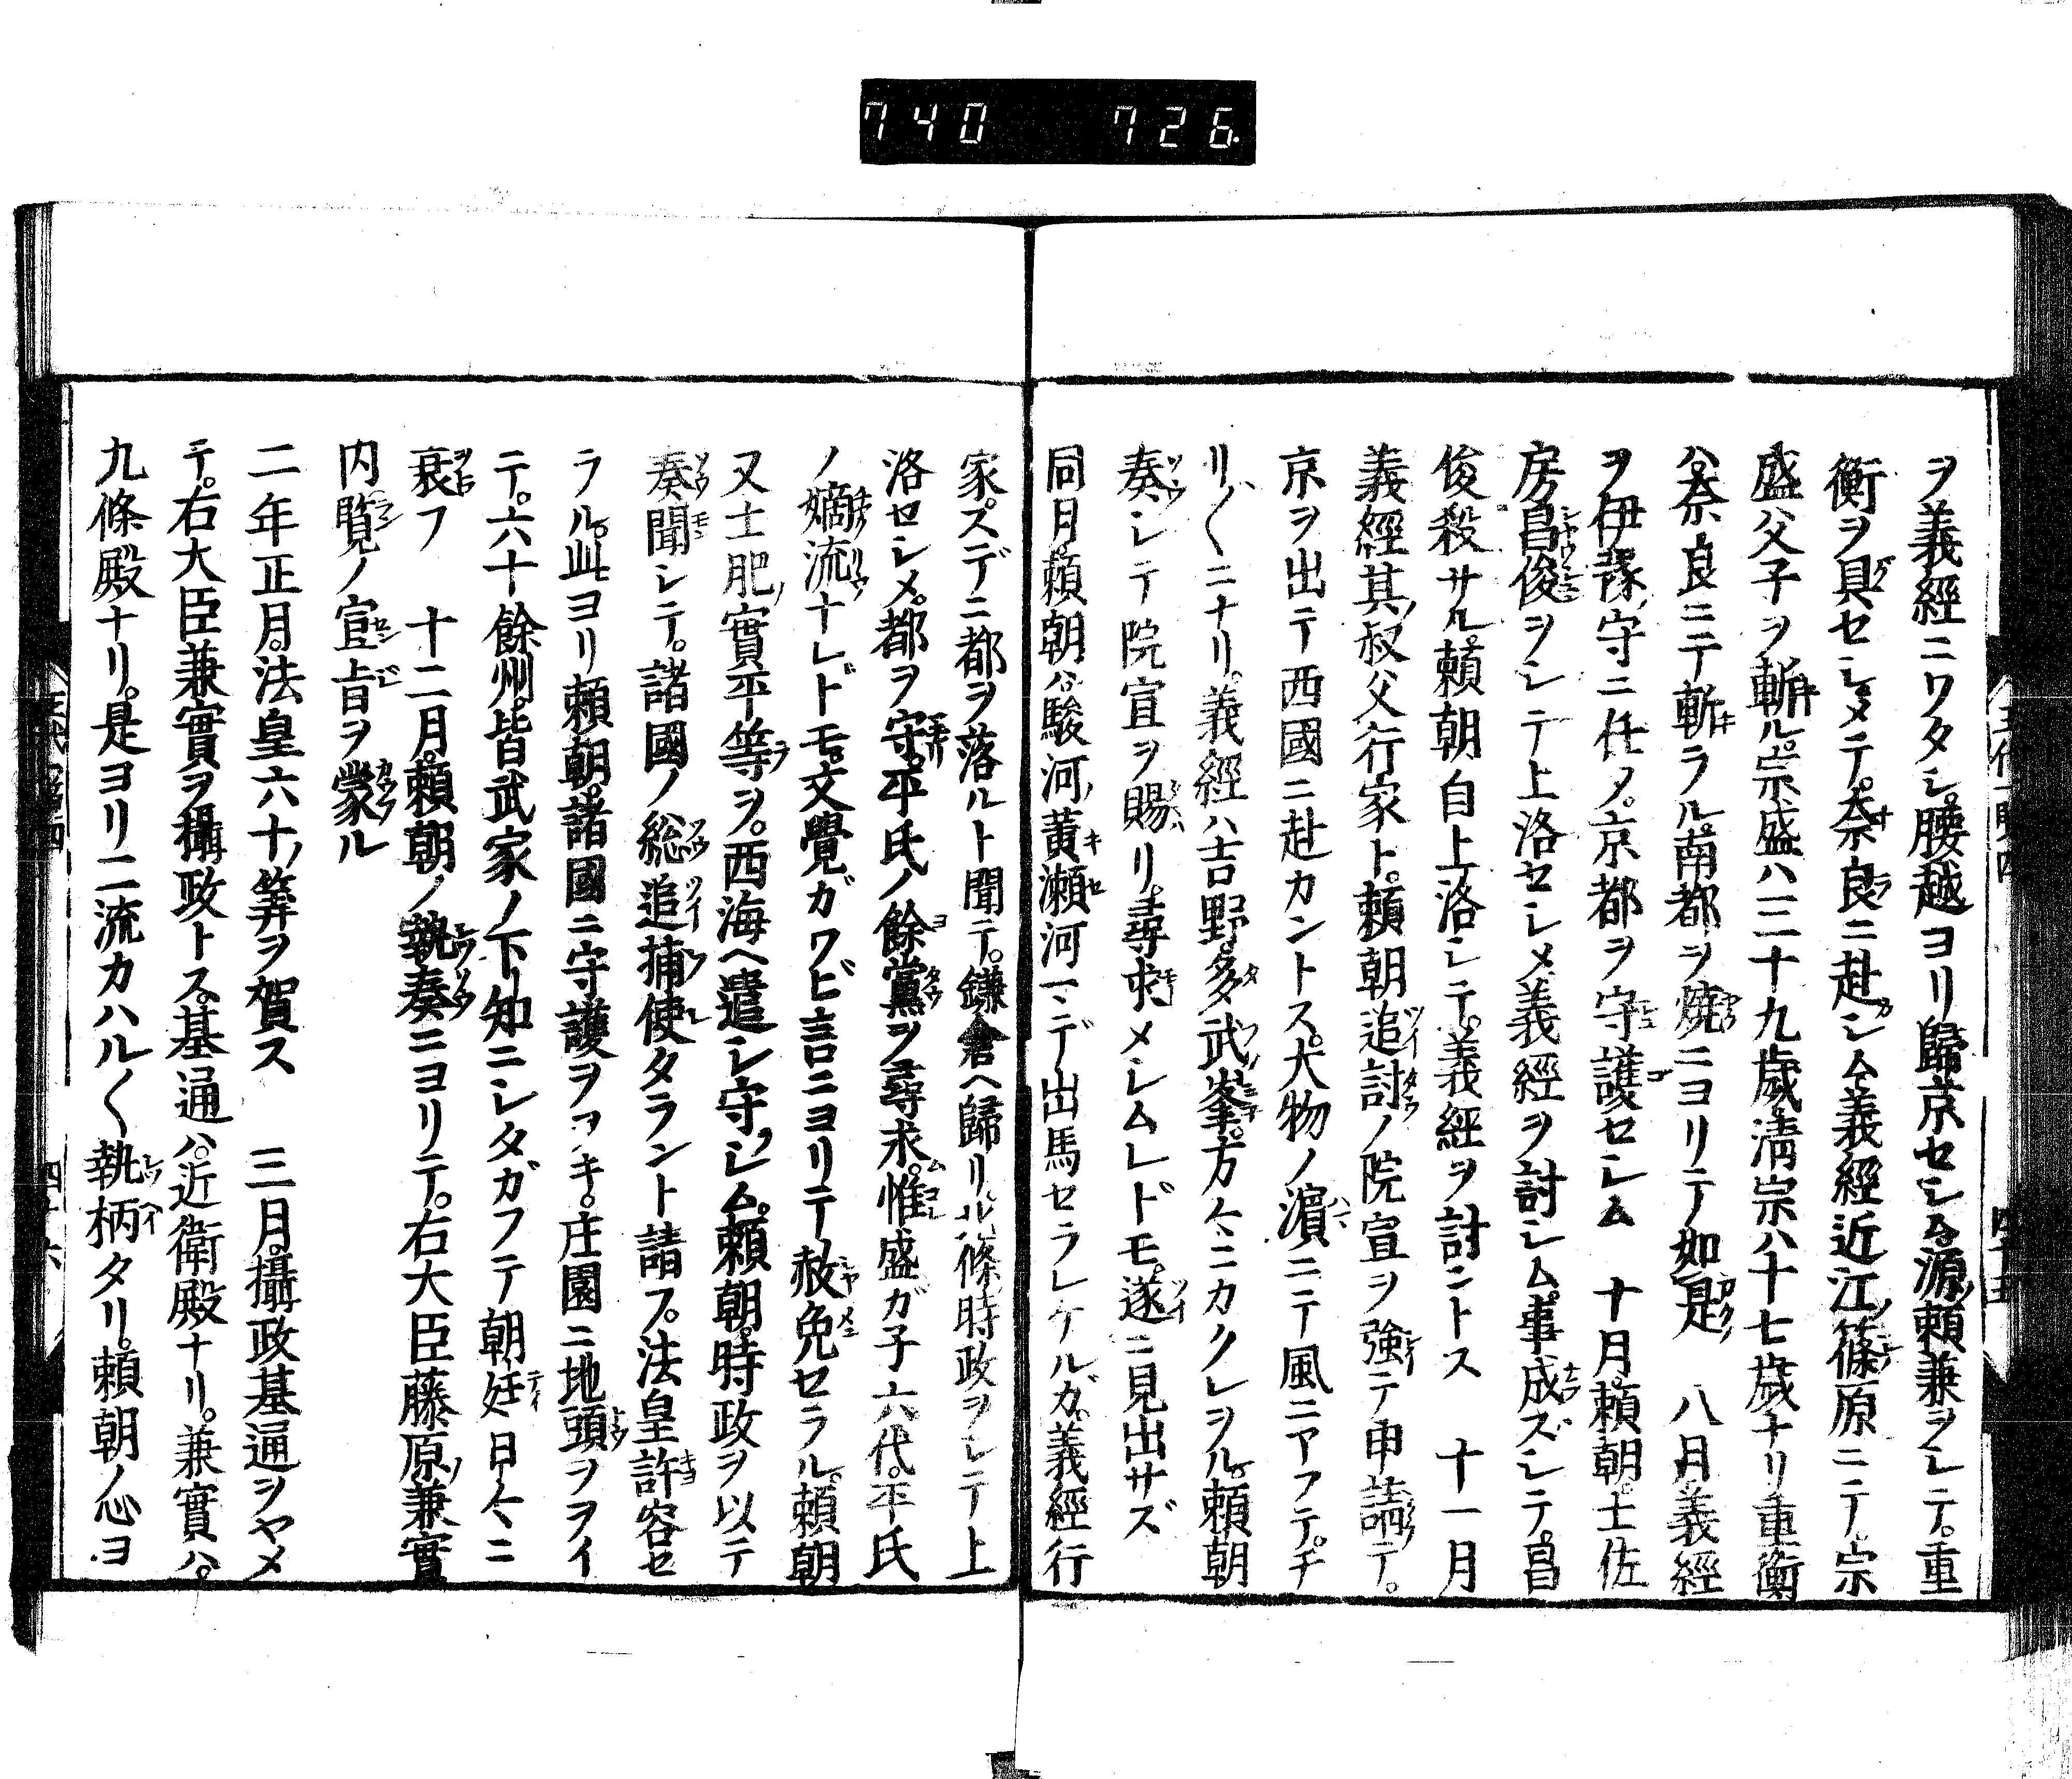 740 726
ヲ義經ニワタシ。腰越ヨリ歸京セシム。源頼兼ヲシテ。重
衡ヲ具セシメテ。奈良ニ赴シム。義經近江ノ篠原ニテ。宗
盛父子ヲ斬ル。宗盛ハ三十九歳。淸宗ハ十七歳ナリ。重衡
ハ奈良ニテ斬ラル。南都ヲ燒ニヨリテ如是　八月。義經
ヲ伊豫守ニ任メ。京都ヲ守護セシム　十月。頼朝。土佐
房昌俊ヲシテ上洛セシメ義經ヲ討シム。事成ズシテ。昌
俊殺サル。頼朝自上洛シテ。義經ヲ討ントス　十一月
義經其ノ叔父行家ト。頼朝追討ノ院宣ヲ強テ申請テ。
京ヲ出テ西國ニ赴カントス。大物ノ濵ニテ風ニアフテ。チ
リ〱ニナリ。義經ハ吉野。多武峯。方々ニカクレヲル。頼朝
奏シテ院宣ヲ賜リ。尋求メシムレドモ。遂ニ見出サズ
同月。頼朝ハ駿河ノ黄瀬河マデ出馬セラレケルガ。義經行
家。スデニ都ヲ落ルト聞テ。鎌倉ヘ歸リ。北條時政ヲシテ上
洛セシメ。都ヲ守。平氏ノ餘黨ヲ尋求。惟盛ガ子六代。平氏
ノ嫡流ナレドモ。文覺ガワビ言ニヨリテ赦免セラル。頼朝
又土肥實平等ヲ。西海ヘ遣シ守シム。頼朝。時政ヲ以テ
奏聞シテ。諸國ノ総追捕使タラント請フ。法皇許容セ
ラル。此ヨリ頼朝。諸國ニ守護ヲヲキ。庄園ニ地頭ヲヲイ
テ。六十餘州。皆武家ノ下知ニシタガフテ朝廷日々ニ
衰フ　十二月。頼朝ノ執奏ニヨリテ。右大臣藤原ノ兼實
内覽ノ宣旨ヲ蒙ル
二年正月。法皇六十ノ筭ヲ賀ス　三月。攝政基通ヲヤメ
テ。右大臣兼實ヲ攝政トス。基通ハ。近衛殿ナリ。兼實ハ。
九條殿ナリ。是ヨリ二流カハル〱執柄タリ。頼朝ノ心ヨ